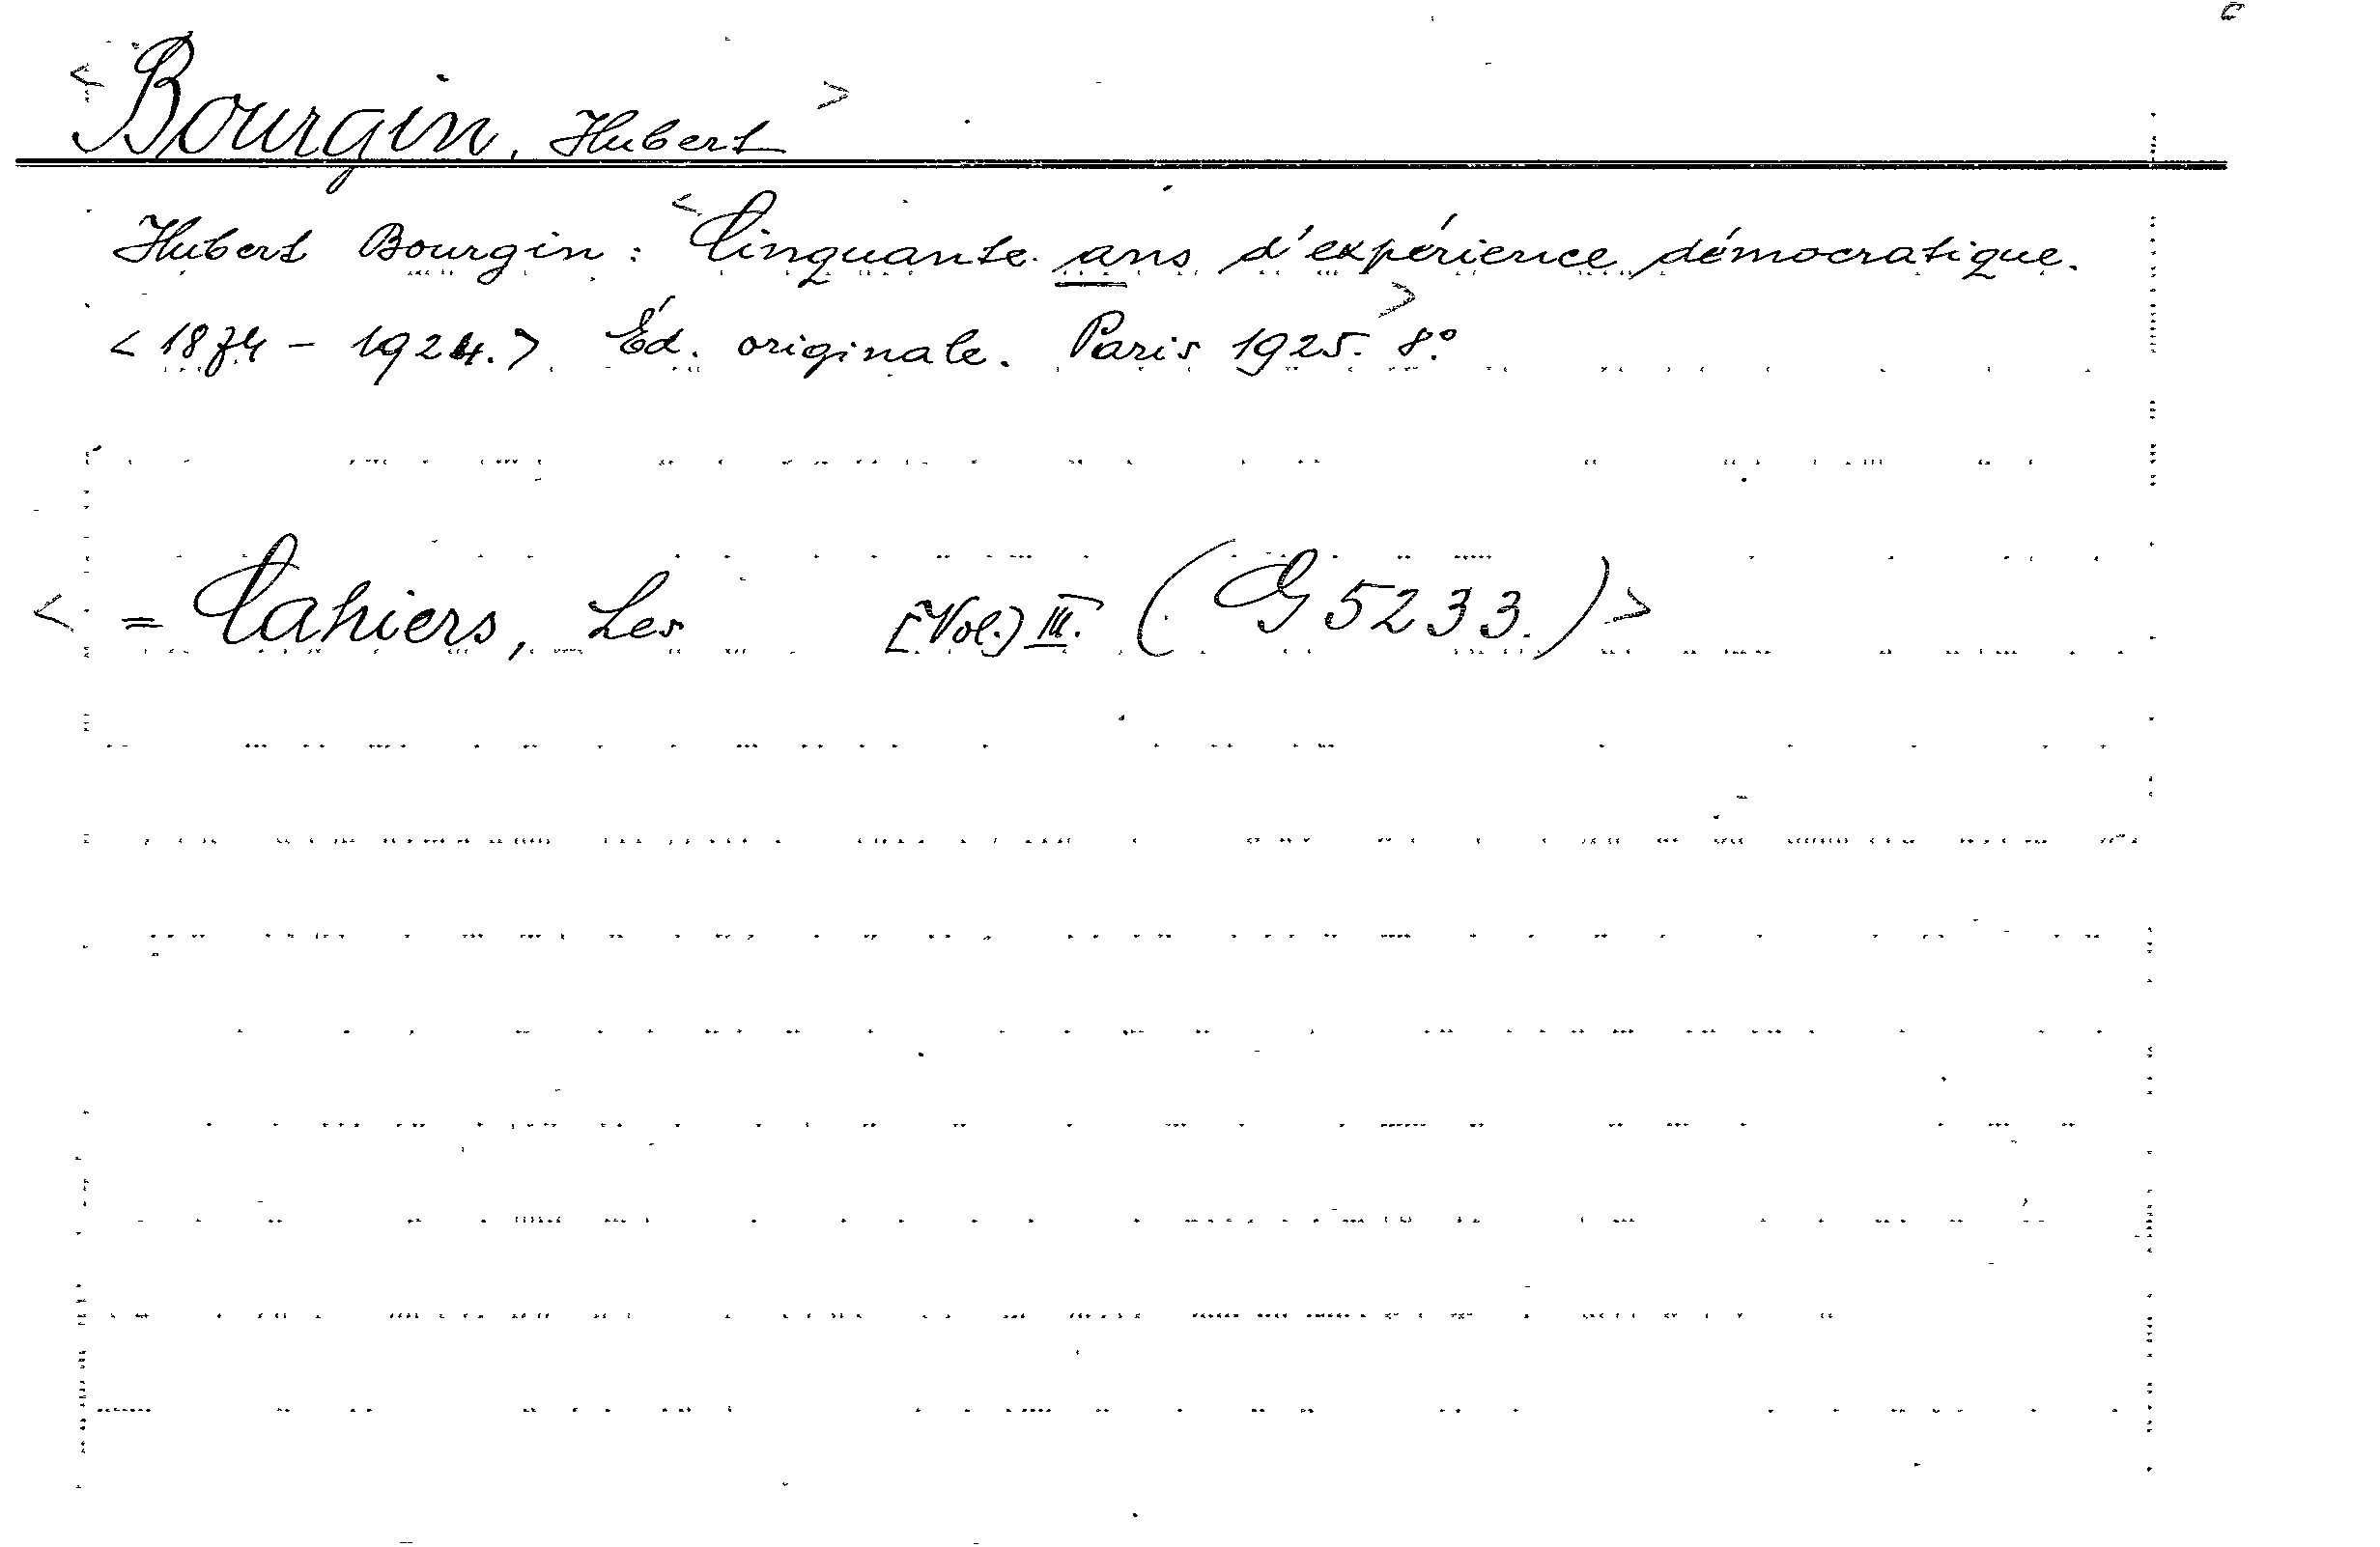 <Bourgin, Hubert>
Hubert Bourgin: <Cinquante ans d'expérience démocratique.
<1874 - 1924.> Éd. originale. Paris 1925.> 8º
< = Cahiers, Les [Vol.] III. (G 5233.)>